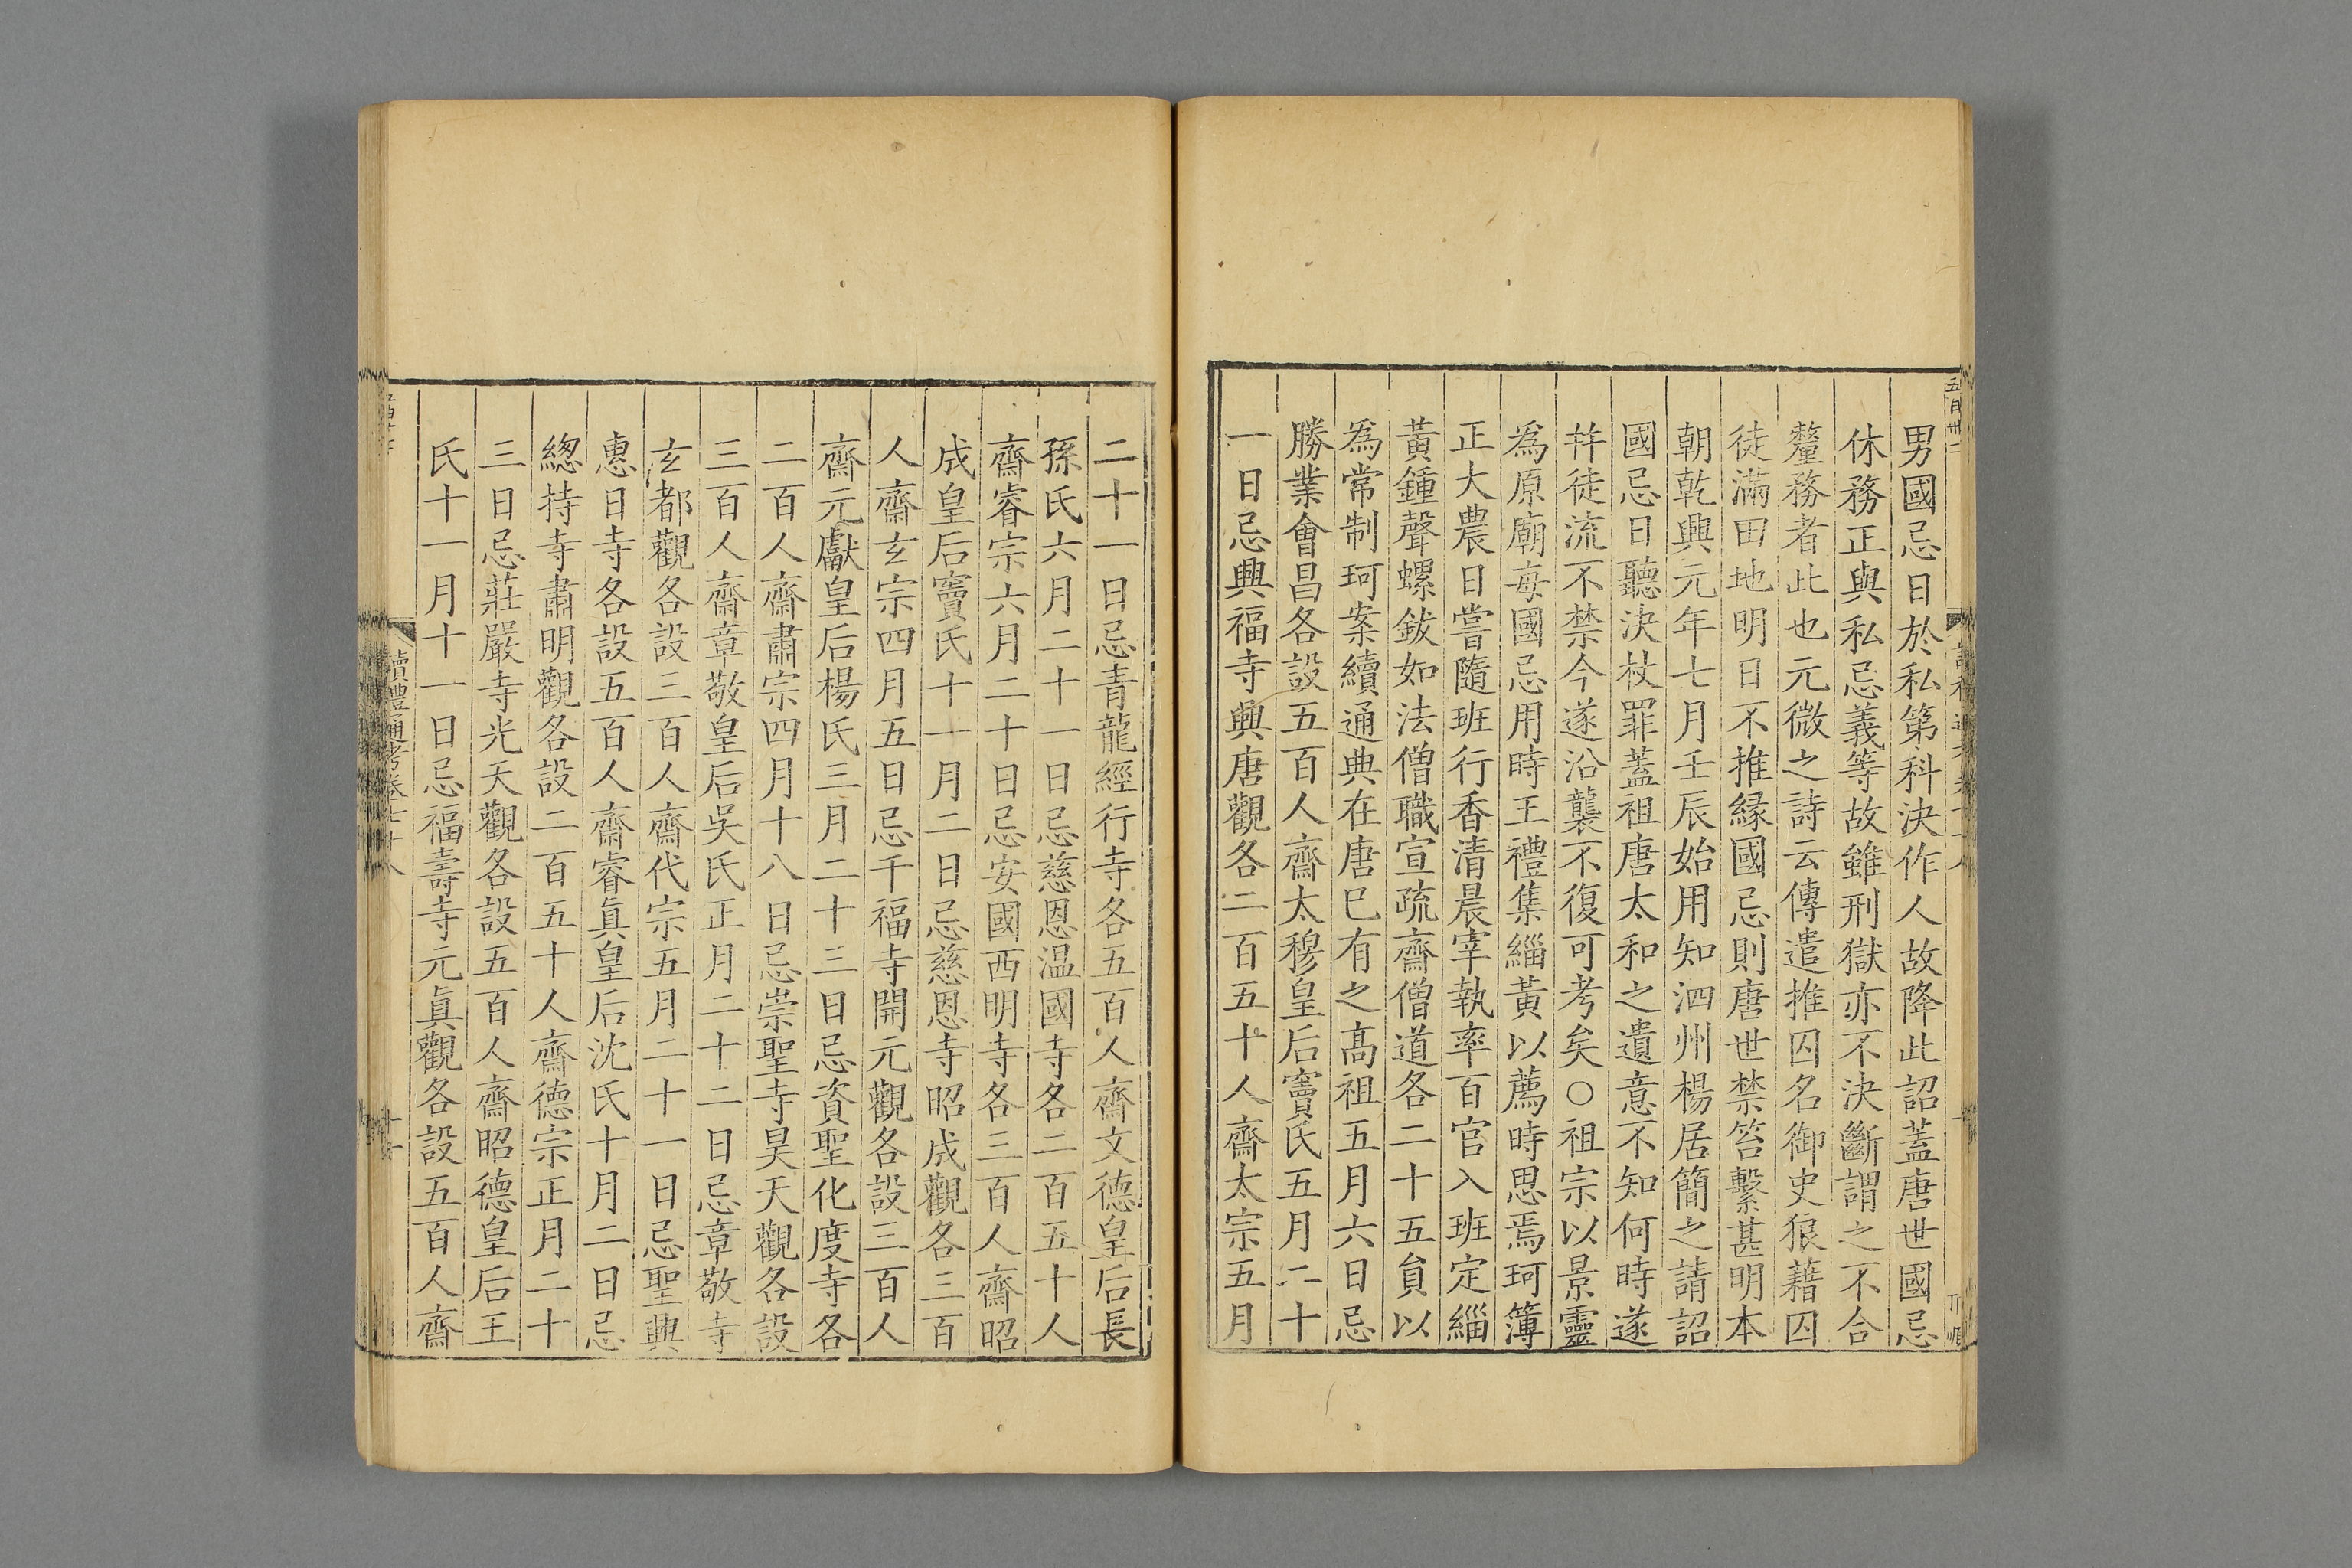 男國忌日於私第科決作人故降此詔蓋唐世國忌
休務正與私忌義等故雖刑獄亦不決斷謂之不合
釐務者此也元微之詩云傳遣推囚名御史狼藉囚
徒滿田地明日不推縁國忌則唐世禁笞繫甚明本
朝乾興元年七月壬辰始用知泗州楊居簡之請詔
國忌日聽決杖罪蓋祖唐太和之遺意不知何時遂
幷徒流不禁今遂沿襲不復可考矣○祖宗以景靈
爲原廟每國忌用時王禮集緇黃以薦時思焉珂簿
正大農日嘗隨班行香清晨宰執率百官入班定緇
黃鍾聲螺鈸如法僧職宣疏齋僧道各二十五員以
爲常制珂案續通典在唐巳有之高祖五月六日忌
勝業會昌各設五百人齋太穆皇后竇氏五月二十
一日忌興福寺興唐觀各二百五十人齋太宗五月
二十一日忌青龍經行寺各五百人齋文德皇后長
孫氏六月二十一日忌慈恩温國寺各二百五十人
齋睿宗六月二十日忌安國西明寺各三百人齋昭
成皇后竇氏十一月二日忌慈恩寺昭成觀各三百
人齋玄宗四月五日忌千福寺開元觀各設三百人
齋元獻皇后楊氏三月二十三日忌資聖化度寺各
二百人齋肅宗四月十八日忌崇聖寺昊天觀各設
三百人齋章敬皇后吳氏正月二十二日忌章敬寺
玄都觀各設三百人齋代宗五月二十一日忌聖興
惠日寺各設五百人齋睿眞皇后沈氏十月二日忌
緫持寺肅明觀各設二百五十人齋德宗正月二十
三日忌莊嚴寺光天觀各設五百人齋昭德皇后王
氏十一月十一日忌福壽寺元眞觀各設五百人齋
讀禮通考卷七十八